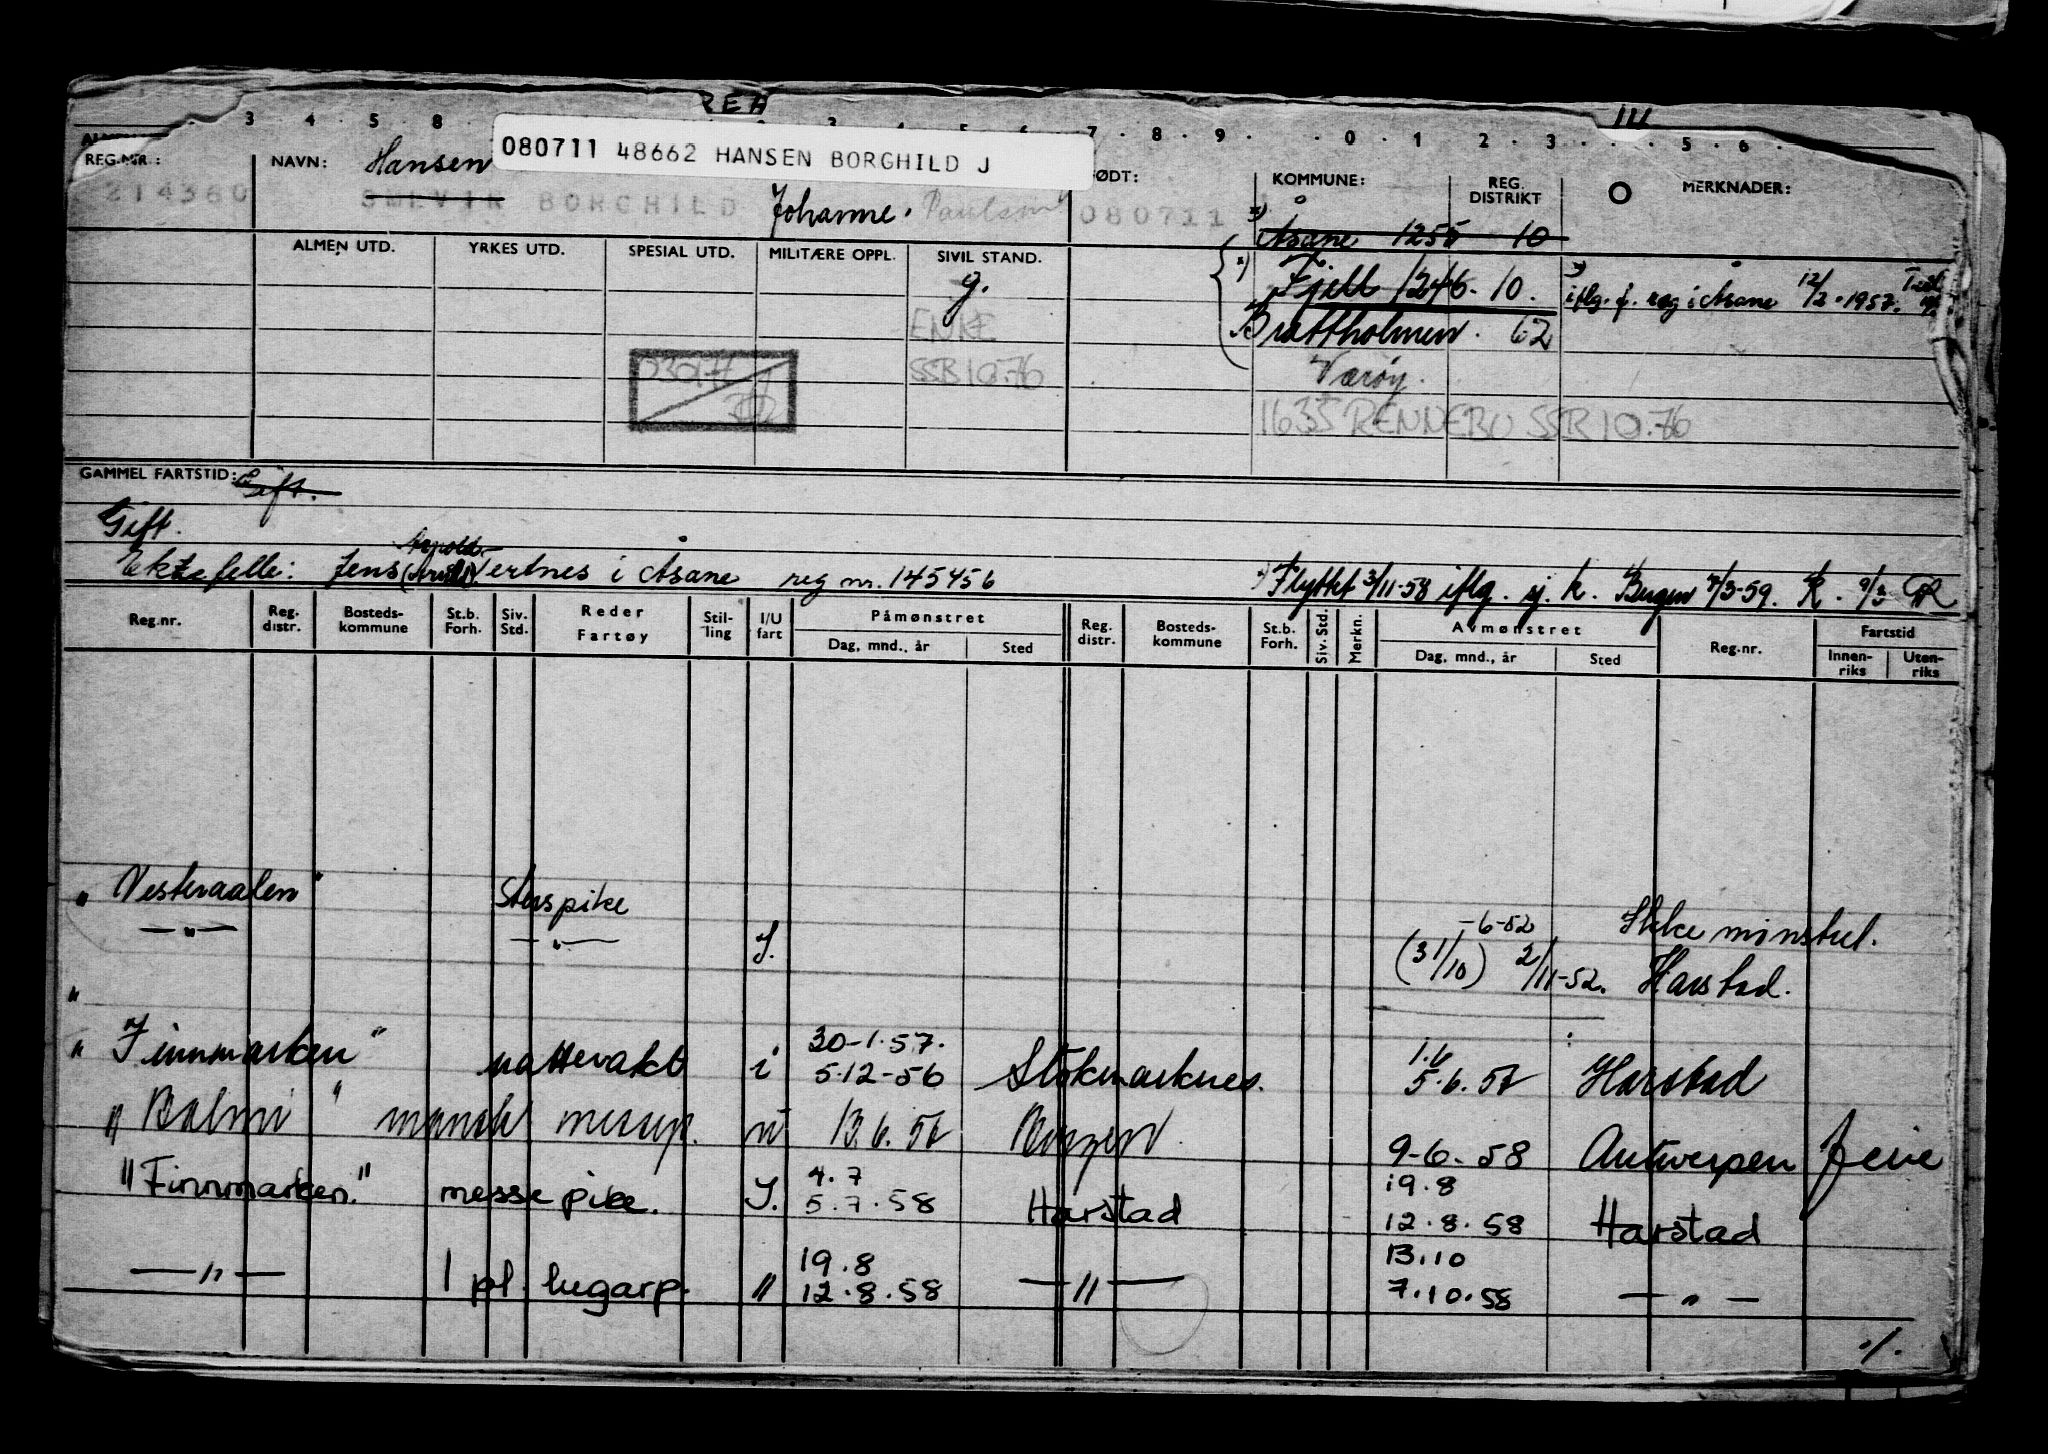 REA
3 4 5 8 3 4 5 6 7 8 9 0 1 2 3 5 6
080711 48662 HANSEN BORGHILD J
REG.NR.: NAVN: Hansen FØDT: KOMMUNE: REG. DISTRIKT MERKNADER:
214360 SMEVIK BORGHILD Johanne. 080711
Åsane 1255 10
ALMEN UTD. YRKES UTD. SPESIAL UTD. MILITÆRE OPPL. SIVIL STAND.
g. x) Fjell 1246. 10. iflg. f. reg i Åsane 12/2.1957.
ENKE Brattholmen. 62
SSB 10.76 Værøy.
1635 RENNEBU SSB 10.76
GAMMEL FARTSTID: Gift.
Gift.
Arnold
Ektefelle: Jens Vertnes i Åsane reg nr. 145456 x) Flyttet 3/11-58 iflg. sj. k. Bergen 7/3-59. K. 9/3
Reg.nr. Reg. distr. Bosteds-kommune St.b. Forh. Siv. Std. Reder Fartøy Stil-ling I/U fart Påmønstret Dag, mnd., år Sted Reg. distr. Bosteds-kommune St.b. Forh. Siv. Std. Merkn. Avmønstret Dag, mnd., år Sted Reg.nr. Fartstid Innen-riks Uten-riks
"Vesteraalen" pike -6-52 Ikke mønstret.
—"— —"— I. (31/10) 2/11-52. Harstad.
"
30-1.57. 1.6
"Finnmarken" nattevakt i 5.12-56 Stokmarknes. 5.6.57 Harstad
"Balmi" mønstr messep. u 13.6.57 Bergen 9-6-58 Antwerpen ferie
4.7 19.8
"Finnmarken." messepike. I. 5.7.58 Harstad 12.8.58 Harstad
19.8 13.10
—"— 1 pl. lugarp. " 12.8.58 —"— 7.10.58 —"—
./.